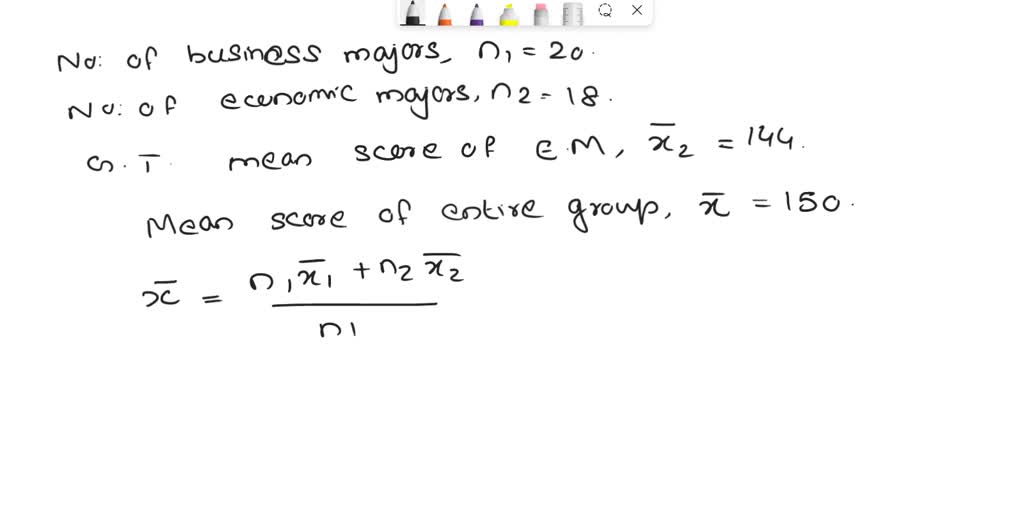 No: of business majors, n1 = 20.
No: of economic majors, n2 = 18.
G.T. mean score of EM, x̄2 = 144.
Mean score of entire group, x̄ = 150.
x̄ = n1x̄1 + n2x̄2
n1